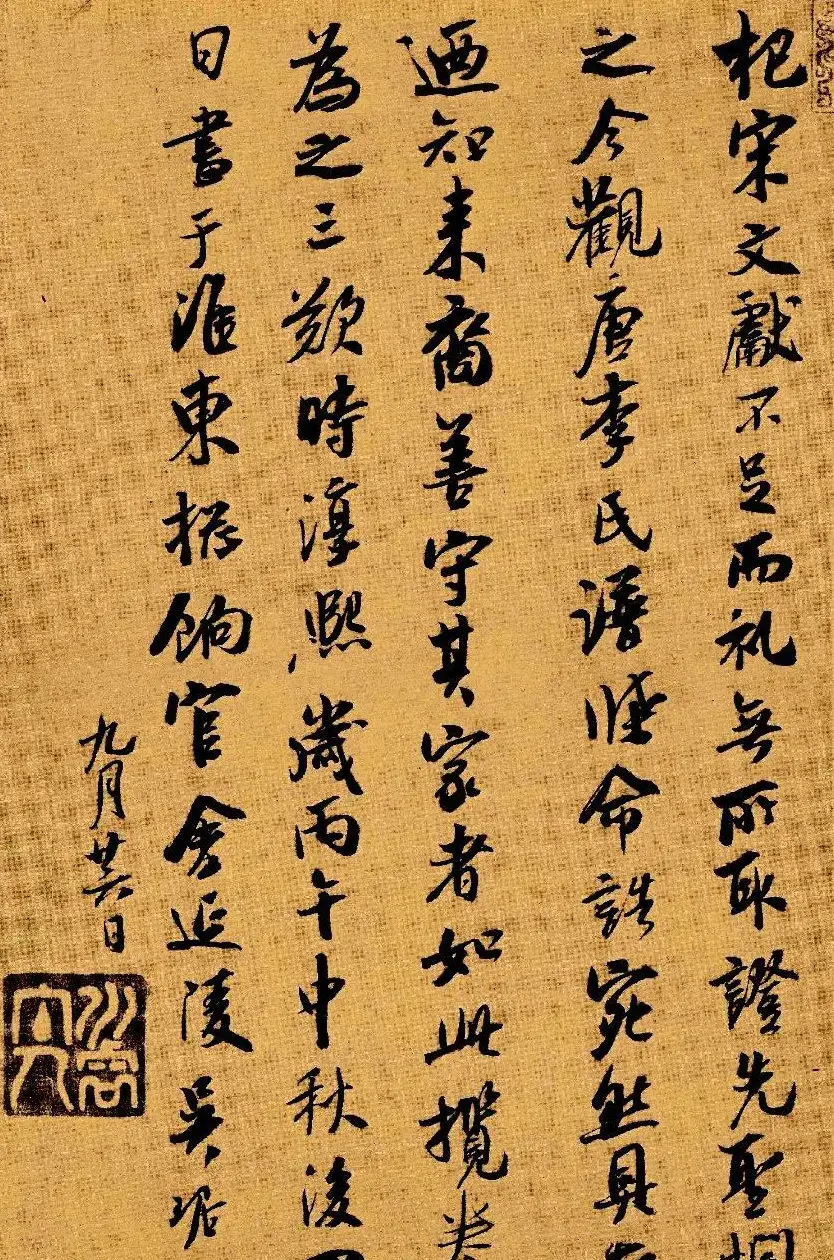 杞宋文獻不足而礼無所取證先聖
之今觀唐李氏譜牒命誥宛然具
迺知来裔善守其家者如此攬卷
為之三歎時淳熙歲丙午中秋後
日書于淮東捴餉官舍延陵吴琚
九月廿六日